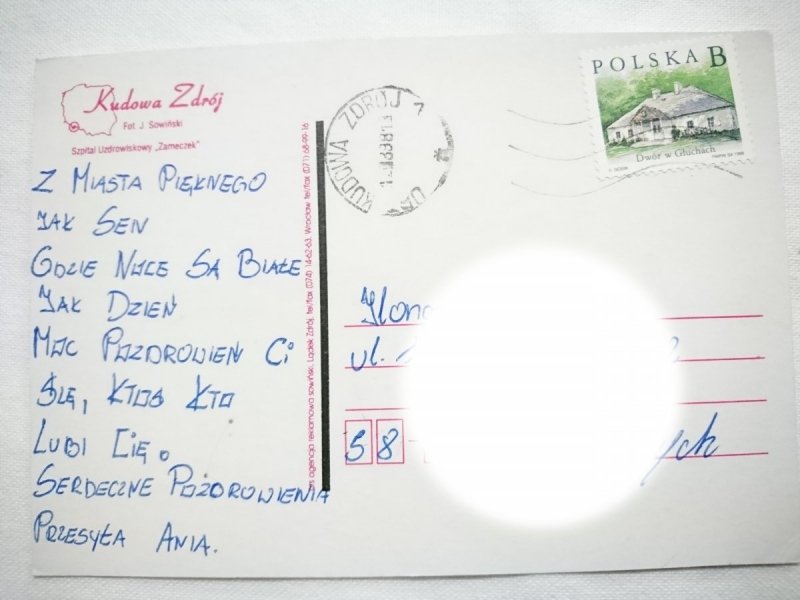 Kudowa Zdrój
Fot J. Sowiński
Szpital Uzdrowiskowy „Zameczek”
Z MIASTA PIĘKNEGO
JAK SEN
GDZIE NOCE SĄ BIAŁE
JAK DZIEŃ
MOC POZDROWIEŃ CI
ŚLĘ, KTOŚ KTO
LUBI CIĘ.
SERDECZNE POZDROWIENIA
PRZESYŁA ANIA.
agencja reklamowa sowiński, Lądek Zdrój, tel/fax (074) 14-62-63, Wrocław tel/fax (071) 68-99-16
KUDOWA ZDRÓJ 1
POLSKA B
Dwór w Głuchach
ul.
58-
ych